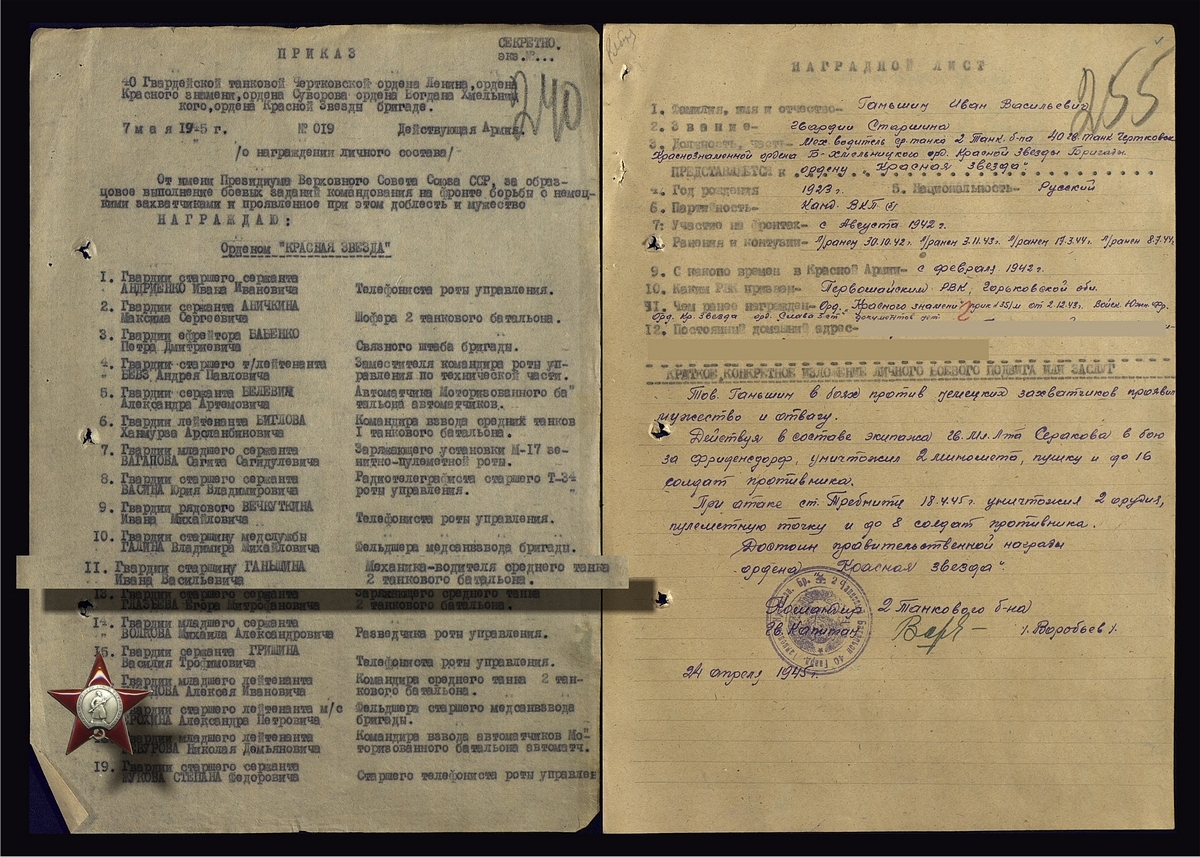 СЕКРЕТНО.
экз.№...
ПРИКАЗ
40 Гвардейской танковой Чертковской ордена Ленина,ордена
Красного знамени,ордена Суворова ордена Богдана Хмельниц
кого,ордена Красной Звезды бригаде.
240
7 мая 1945 г. №019 Действующая Армия.
/о награждении личного состава/
От имени Президиума Верховного Совета Союза ССР, за образ-
цовое выполнение боевых заданий командования на фронте борьбы с немец-
кими захватчиками и проявленное при этом доблесть и мужество
НАГРАЖДАЮ:
Орденом "КРАСНАЯ ЗВЕЗДА"
1. Гвардии старшего сержанта
АНДРИЕНКО Ивана Ивановича Телефониста роты управления.
2. Гвардии сержанта АНИЧКИНА
Максима Сергеевича Шофера 2 танкового батальона.
3. Гвардии ефрейтора БАБЕНКО
Петра Дмитриевича Связного штаба бригады.
4. Гвардии старшего т/лейтенанта Заместителя командира роты уп-
БЕВЗ Андрея Павловича равления по технической части.
5. Гвардии сержанта БЕЛЕВИЧ Автоматчика Моторизованного ба"
Александра Артемовича тальона автоматчиков.
6. Гвардии лейтенанта БИГЛОВА Командира взвода средних танков
Ханмурза Арсланбиновича I танкового батальона.
7. Гвардии младшего сержанта Заряжающего установки М-17 зе-
ВАГАПОВА Сагита Сагидулевича нитно-пулеметной роты.
8. Гвардии старшего сержанта Радиотелеграфиста старшего Т-34
ВАСИНА Юрия Владимировича роты управления.
9. Гвардии рядового ВЕЧКУТКИНА
Ивана Михайловича Телефониста роты управления.
10. Гвардии старшину медслужбы
ГАЛИНА Владимира Михайловича Фельдшера медсанвзвода бригады.
II. Гвардии старшину ГАНЬШИНА Механика-водителя среднего танка
Ивана Васильевича 2 танкового батальона.
Гвардии старшего сержанта Заряжающего среднего танка
ГЛАЗЬЕВА Егора Митрофановича 2 танкового батальона.
Гвардии младшего сержанта
ВОЛКОВА Михаила Александровича Разведчика роты управления.
Гвардии сержанта ГРИШИНА
Василия Трофимовича Телефониста роты управления.
Гвардии младшего лейтенанта Командира среднего танка 2 тан-
Алексея Ивановича кового батальона.
старшего лейтенанта м/с Фельдшера старшего медсанвзвода
Александра Петровича бригады.
младшего лейтенанта Командира взвода автоматчиков Мо"
Николая Демьяновича торизованного батальона автоматч.
19. Гвардии старшего сержанта
ЖУКОВА СТЕПАНА Федоровича Старшего телефониста роты управлен
255
НАГРАДНОЙ ЛИСТ
1. Фамилия, имя и отчество- Ганьшин Иван Васильевич
2. Звание- Гвардии Старшина
3. Должность, часть- Мех.водитель ср.танка 2 Танк. б-на 40 гв. танк Чертковск
Краснознаменной ордена Б-Хмельницкого орд. Красной Звезды Бригады.
ПРЕДСТАВЛЯЕТСЯ к ордену "Красная Звезда"
4. Год рождения 1923 г. 5. Национальность- Русский
6. Партийность- Канд. ВКП(б)
7. Участие на фронтах- с Августа 1942 г.
8. Ранения и контузии- л/ранен 30.10.42 г. л/ранен 3.11.43 г. л/ранен 17.3.44 г. л/ранен 8.7.44
9. С какого времени в Красной Армии- с февраля 1942 г.
10. Каким РВК призван- Первомайский РВК, Горьковской обл.
11. Чем ранее награжден- Орд. Красного знамени прик №251/н от 2.12.43. Войск. Южн. Фр.
Орд. Кр. Звезда орд. Слава 3 ст. документов нет
12. Постоянный домашний адрес-
КРАТКОЕ,КОНКРЕТНОЕ ИЗЛОЖЕНИЕ ЛИЧНОГО БОЕВОГО ПОДВИГА ИЛИ ЗАСЛУГ
Тов. Ганьшин в боях против немецких захватчиков проявил
мужество и отвагу.
Действуя в составе экипажа гв. Мл. Л-та Серакова в бою
за Фриденсдорф, уничтожил 2 миномета, пушку и до 16
солдат противника.
При атаке ст. Требнитц 18.4.45 г. уничтожил 2 орудия,
пулеметную точку и до 8 солдат противника.
Достоин правительственной награды
ордена "Красная Звезда".
Командир 2 Танкового б-на
Гв. Капитан /Воробьев/.
24 апреля 1945 г.